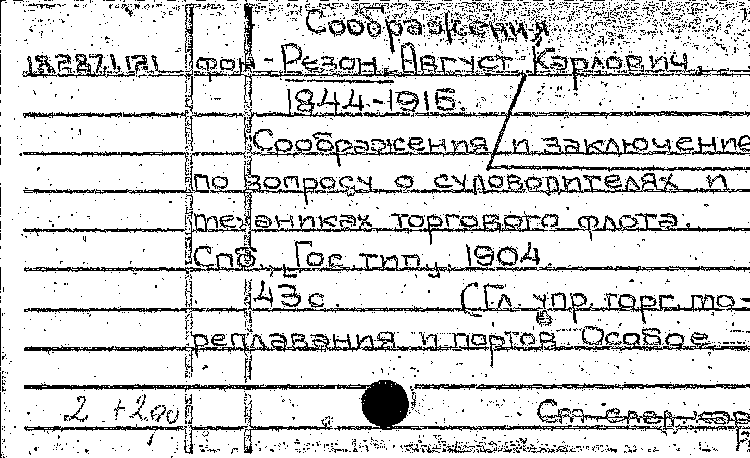 Соображения
фон-Резон, Август Карлович,
1844-1915.
Соображения и заключение
по вопросу о судоводителях и
механиках торгового флота.
Спб., Гос. тип., 1904.
43 с. (Гл. упр. торг. мо-
реплавания и портов. Особое
2 +
См. след. кар